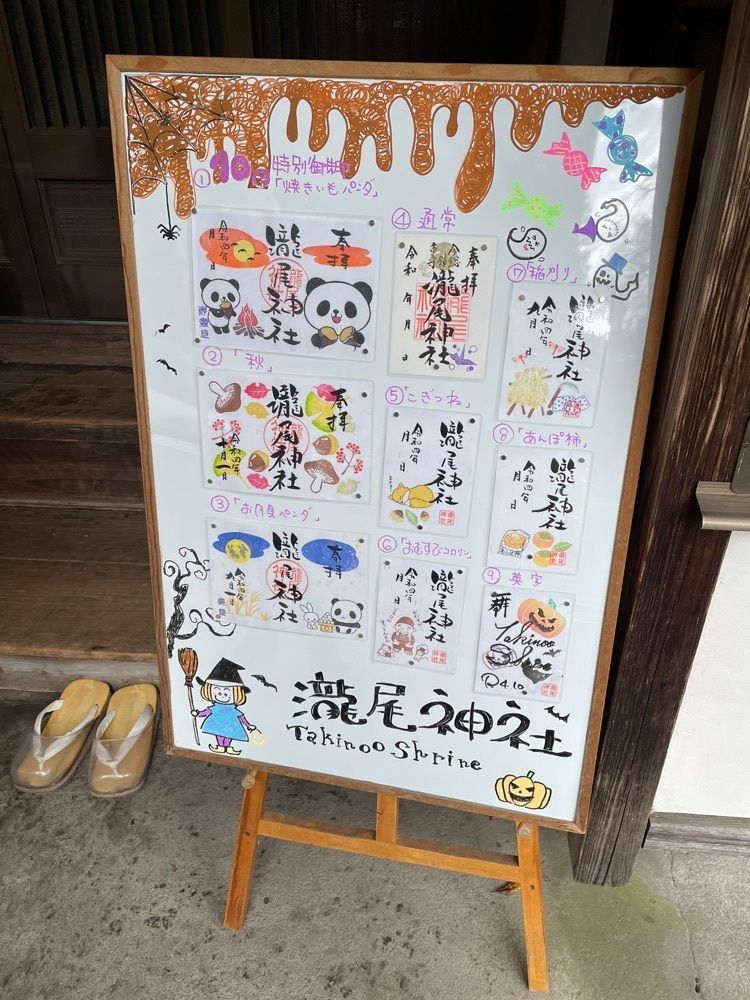 ① 10月特別御朱印
「焼きいもパンダ」
奉拝
瀧尾神社
令和四年
月 日
② 「秋」
奉拝
瀧尾神社
令和四年
十月一日
③ 「お月見パンダ」
奉拝
瀧尾神社
令和四年
九月一日
④ 通常
奉拝
瀧尾神社
令和 年 月 日
⑤ 「こぎつね」
瀧尾神社
令和四年
月 日
⑥ 「おむすびコロリン」
瀧尾神社
令和四年
月 日
⑦ 「稲刈り」
瀧尾神社
令和四年
九月 日
⑧ 「あんぽ柿」
瀧尾神社
令和四年
月 日
⑨ 英字
Takinoo
R4.10.
瀧尾神社
Takinoo Shrine